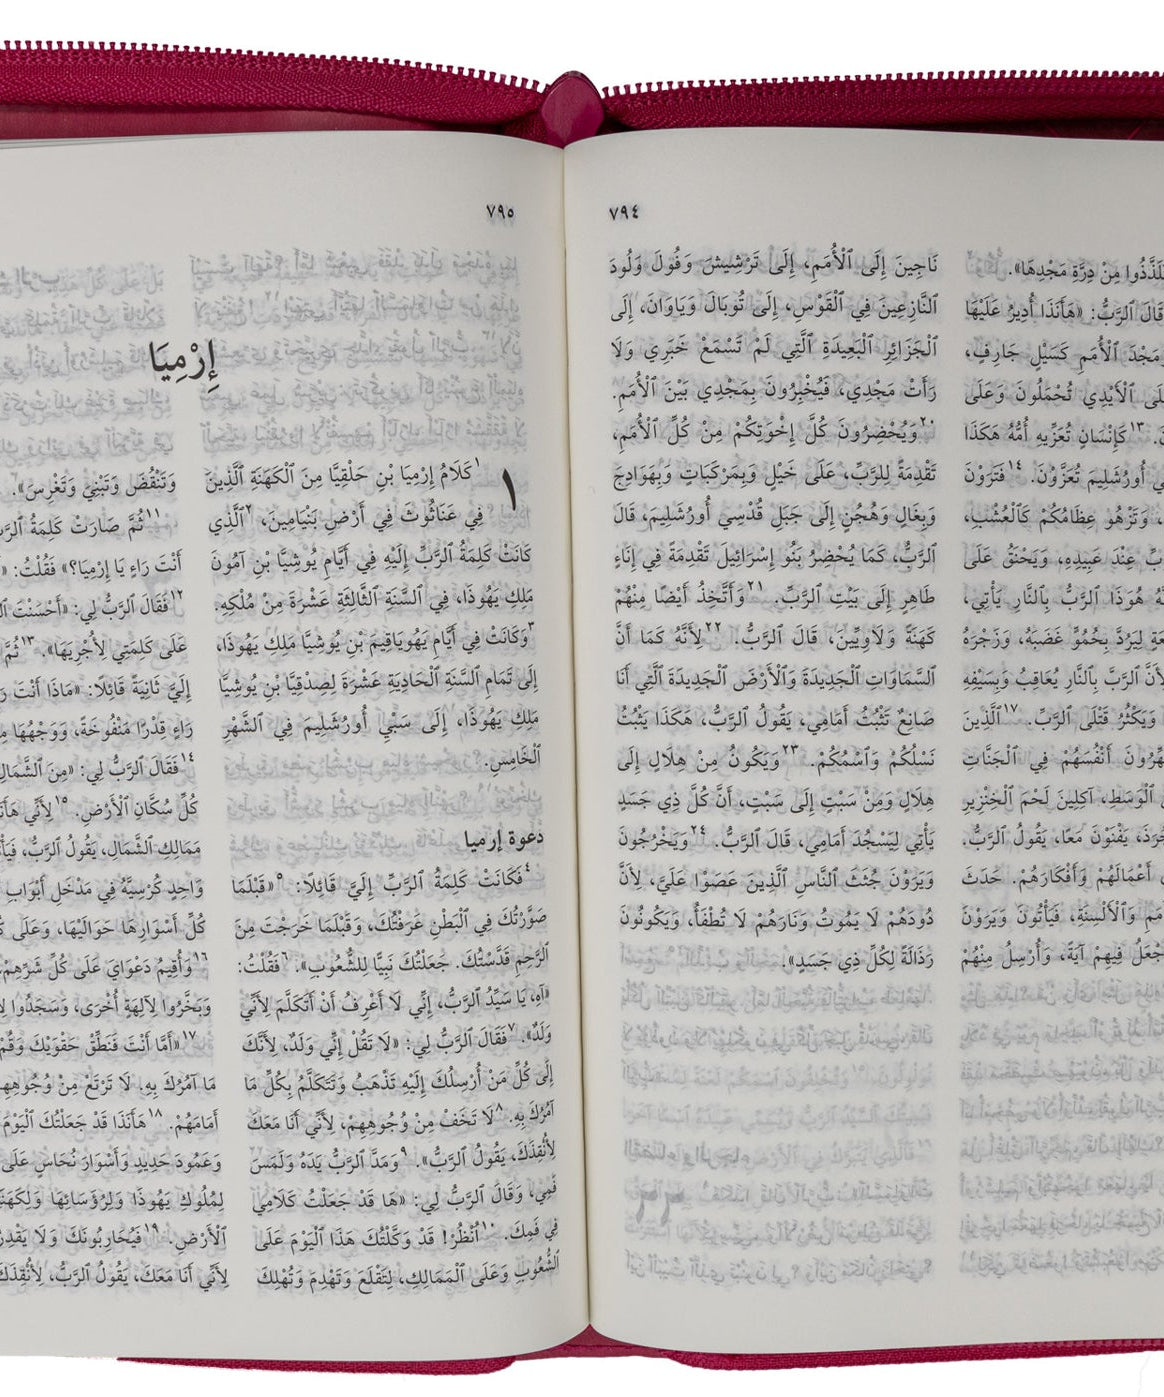 ٧٩٤
مِنْ دِرَّةِ مَجْدِهَا».
قَالَ ٱلرَّبُّ: «هَأَنَذَا أُدِيرُ عَلَيْهَا
مَجْدَ ٱلْأُمَمِ كَسَيْلٍ جَارِفٍ،
ٱلْأَيْدِي تُحْمَلُونَ وَعَلَى
١٣كَإِنْسَانٍ تُعَزِّيهِ أُمُّهُ هَكَذَا
أُورُشَلِيمَ تُعَزَّوْنَ. ١٤فَتَرَوْنَ
وَتَزْهُو عِظَامُكُمْ كَٱلْعُشْبِ،
عِنْدَ عَبِيدِهِ، وَيَحْنَقُ عَلَى
هُوَذَا ٱلرَّبُّ بِٱلنَّارِ يَأْتِي،
لِيَرُدَّ بِحُمُوٍّ غَضَبَهُ، وَزَجْرَهُ
ٱلرَّبَّ بِٱلنَّارِ يُعَاقِبُ وَبِسَيْفِهِ
وَيَكْثُرُ قَتْلَى ٱلرَّبِّ. ١٧ٱلَّذِينَ
أَنْفُسَهُمْ فِي ٱلْجَنَّاتِ
ٱلْوَسَطِ، آكِلِينَ لَحْمَ ٱلْخِنْزِيرِ
يَفْنَوْنَ مَعًا، يَقُولُ ٱلرَّبُّ.
أَعْمَالَهُمْ وَأَفْكَارَهُمْ. حَدَثَ
وَٱلْأَلْسِنَةِ، فَيَأْتُونَ وَيَرَوْنَ
فِيهِمْ آيَةً، وَأُرْسِلُ مِنْهُمْ
نَاجِينَ إِلَى ٱلْأُمَمِ، إِلَى تَرْشِيشَ وَفُولَ وَلُودَ
ٱلنَّازِعِينَ فِي ٱلْقَوْسِ، إِلَى تُوبَالَ وَيَاوَانَ، إِلَى
ٱلْجَزَائِرِ ٱلْبَعِيدَةِ ٱلَّتِي لَمْ تَسْمَعْ خَبَرِي وَلَا
رَأَتْ مَجْدِي، فَيُخْبِرُونَ بِمَجْدِي بَيْنَ ٱلْأُمَمِ.
٢٠وَيُحْضِرُونَ كُلَّ إِخْوَتِكُمْ مِنْ كُلِّ ٱلْأُمَمِ،
تَقْدِمَةً لِلرَّبِّ، عَلَى خَيْلٍ وَبِمَرْكَبَاتٍ وَبِهَوَادِجَ
وَبِغَالٍ وَهُجُنٍ إِلَى جَبَلِ قُدْسِي أُورُشَلِيمَ، قَالَ
ٱلرَّبُّ، كَمَا يُحْضِرُ بَنُو إِسْرَائِيلَ تَقْدِمَةً فِي إِنَاءٍ
طَاهِرٍ إِلَى بَيْتِ ٱلرَّبِّ. ٢١وَأَتَّخِذُ أَيْضًا مِنْهُمْ
كَهَنَةً وَلَاوِيِّينَ، قَالَ ٱلرَّبُّ. ٢٢لِأَنَّهُ كَمَا أَنَّ
ٱلسَّمَاوَاتِ ٱلْجَدِيدَةَ وَٱلْأَرْضَ ٱلْجَدِيدَةَ ٱلَّتِي أَنَا
صَانِعٌ تَثْبُتُ أَمَامِي، يَقُولُ ٱلرَّبُّ، هَكَذَا يَثْبُتُ
نَسْلُكُمْ وَٱسْمُكُمْ. ٢٣وَيَكُونُ مِنْ هِلَالٍ إِلَى
هِلَالٍ وَمِنْ سَبْتٍ إِلَى سَبْتٍ، أَنَّ كُلَّ ذِي جَسَدٍ
يَأْتِي لِيَسْجُدَ أَمَامِي، قَالَ ٱلرَّبُّ. ٢٤وَيَخْرُجُونَ
وَيَرَوْنَ جُثَثَ ٱلنَّاسِ ٱلَّذِينَ عَصَوْا عَلَيَّ، لِأَنَّ
دُودَهُمْ لَا يَمُوتُ وَنَارَهُمْ لَا تُطْفَأُ، وَيَكُونُونَ
رَذَالَةً لِكُلِّ ذِي جَسَدٍ».
٧٩٥
إِرْمِيَا
١
١كَلَامُ إِرْمِيَا بْنِ حَلْقِيَّا مِنَ ٱلْكَهَنَةِ ٱلَّذِينَ
فِي عَنَاثُوثَ فِي أَرْضِ بَنْيَامِينَ، ٢ٱلَّذِي
كَانَتْ كَلِمَةُ ٱلرَّبِّ إِلَيْهِ فِي أَيَّامِ يُوشِيَّا بْنِ آمُونَ
مَلِكِ يَهُوذَا، فِي ٱلسَّنَةِ ٱلثَّالِثَةِ عَشْرَةَ مِنْ مُلْكِهِ.
٣وَكَانَتْ فِي أَيَّامِ يَهُويَاقِيمَ بْنِ يُوشِيَّا مَلِكِ يَهُوذَا،
إِلَى تَمَامِ ٱلسَّنَةِ ٱلْحَادِيَةِ عَشْرَةَ لِصِدْقِيَّا بْنِ يُوشِيَّا
مَلِكِ يَهُوذَا، إِلَى سَبْيِ أُورُشَلِيمَ فِي ٱلشَّهْرِ
ٱلْخَامِسِ.
دعوة إرميا
٤فَكَانَتْ كَلِمَةُ ٱلرَّبِّ إِلَيَّ قَائِلًا: ٥«قَبْلَمَا
صَوَّرْتُكَ فِي ٱلْبَطْنِ عَرَفْتُكَ، وَقَبْلَمَا خَرَجْتَ مِنَ
ٱلرَّحِمِ قَدَّسْتُكَ. جَعَلْتُكَ نَبِيًّا لِلشُّعُوبِ». ٦فَقُلْتُ:
«آهِ، يَا سَيِّدُ ٱلرَّبُّ، إِنِّي لَا أَعْرِفُ أَنْ أَتَكَلَّمَ لِأَنِّي
وَلَدٌ». ٧فَقَالَ ٱلرَّبُّ لِي: «لَا تَقُلْ إِنِّي وَلَدٌ، لِأَنَّكَ
إِلَى كُلِّ مَنْ أُرْسِلُكَ إِلَيْهِ تَذْهَبُ وَتَتَكَلَّمُ بِكُلِّ مَا
آمُرُكَ بِهِ. ٨لَا تَخَفْ مِنْ وُجُوهِهِمْ، لِأَنِّي أَنَا مَعَكَ
لِأُنْقِذَكَ، يَقُولُ ٱلرَّبُّ». ٩وَمَدَّ ٱلرَّبُّ يَدَهُ وَلَمَسَ
فَمِي، وَقَالَ ٱلرَّبُّ لِي: «هَا قَدْ جَعَلْتُ كَلَامِي
فِي فَمِكَ. ١٠اُنْظُرْ! قَدْ وَكَّلْتُكَ هَذَا ٱلْيَوْمَ عَلَى
ٱلشُّعُوبِ وَعَلَى ٱلْمَمَالِكِ، لِتَقْلَعَ وَتَهْدِمَ وَتُهْلِكَ
وَتَنْقُضَ وَتَبْنِيَ وَتَغْرِسَ».
١١ثُمَّ صَارَتْ كَلِمَةُ ٱلرَّبِّ
أَنْتَ رَاءٍ يَا إِرْمِيَا؟» فَقُلْتُ: «
١٢فَقَالَ ٱلرَّبُّ لِي: «أَحْسَنْتَ
عَلَى كَلِمَتِي لِأُجْرِيَهَا». ١٣ثُمَّ
إِلَيَّ ثَانِيَةً قَائِلًا: «مَاذَا أَنْتَ
رَاءٍ قِدْرًا مَنْفُوخَةً، وَوَجْهُهَا
١٤فَقَالَ ٱلرَّبُّ لِي: «مِنَ ٱلشِّمَالِ
كُلِّ سُكَّانِ ٱلْأَرْضِ. ١٥لِأَنِّي
مَمَالِكِ ٱلشِّمَالِ، يَقُولُ ٱلرَّبُّ،
وَاحِدٍ كُرْسِيَّهُ فِي مَدْخَلِ أَبْوَابِ
كُلِّ أَسْوَارِهَا حَوَالَيْهَا، وَعَلَى
١٦وَأُقِيمُ دَعْوَايَ عَلَى كُلِّ شَرِّهِمْ،
وَبَخَّرُوا لِآلِهَةٍ أُخْرَى، وَسَجَدُوا
١٧«أَمَّا أَنْتَ فَنَطِّقْ حَقْوَيْكَ وَقُمْ
مَا آمُرُكَ بِهِ. لَا تَرْتَعْ مِنْ وُجُوهِهِمْ
أَمَامَهُمْ. ١٨هَأَنَذَا قَدْ جَعَلْتُكَ ٱلْيَوْمَ
وَعَمُودَ حَدِيدٍ وَأَسْوَارَ نُحَاسٍ عَلَى
لِمُلُوكِ يَهُوذَا وَلِرُؤَسَائِهَا
ٱلْأَرْضِ. ١٩فَيُحَارِبُونَكَ وَلَا
لِأَنِّي أَنَا مَعَكَ، يَقُولُ ٱلرَّبُّ، لِأُنْقِذَكَ